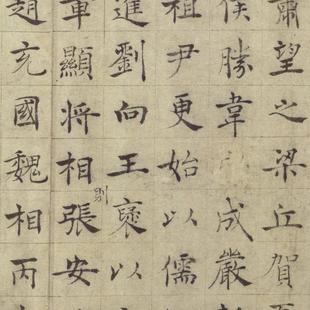 蕭望之梁丘賀
侯勝韋玄成嚴
祖尹更始以儒
進劉向王褒以
章顯將相張安
趙充國魏相丙